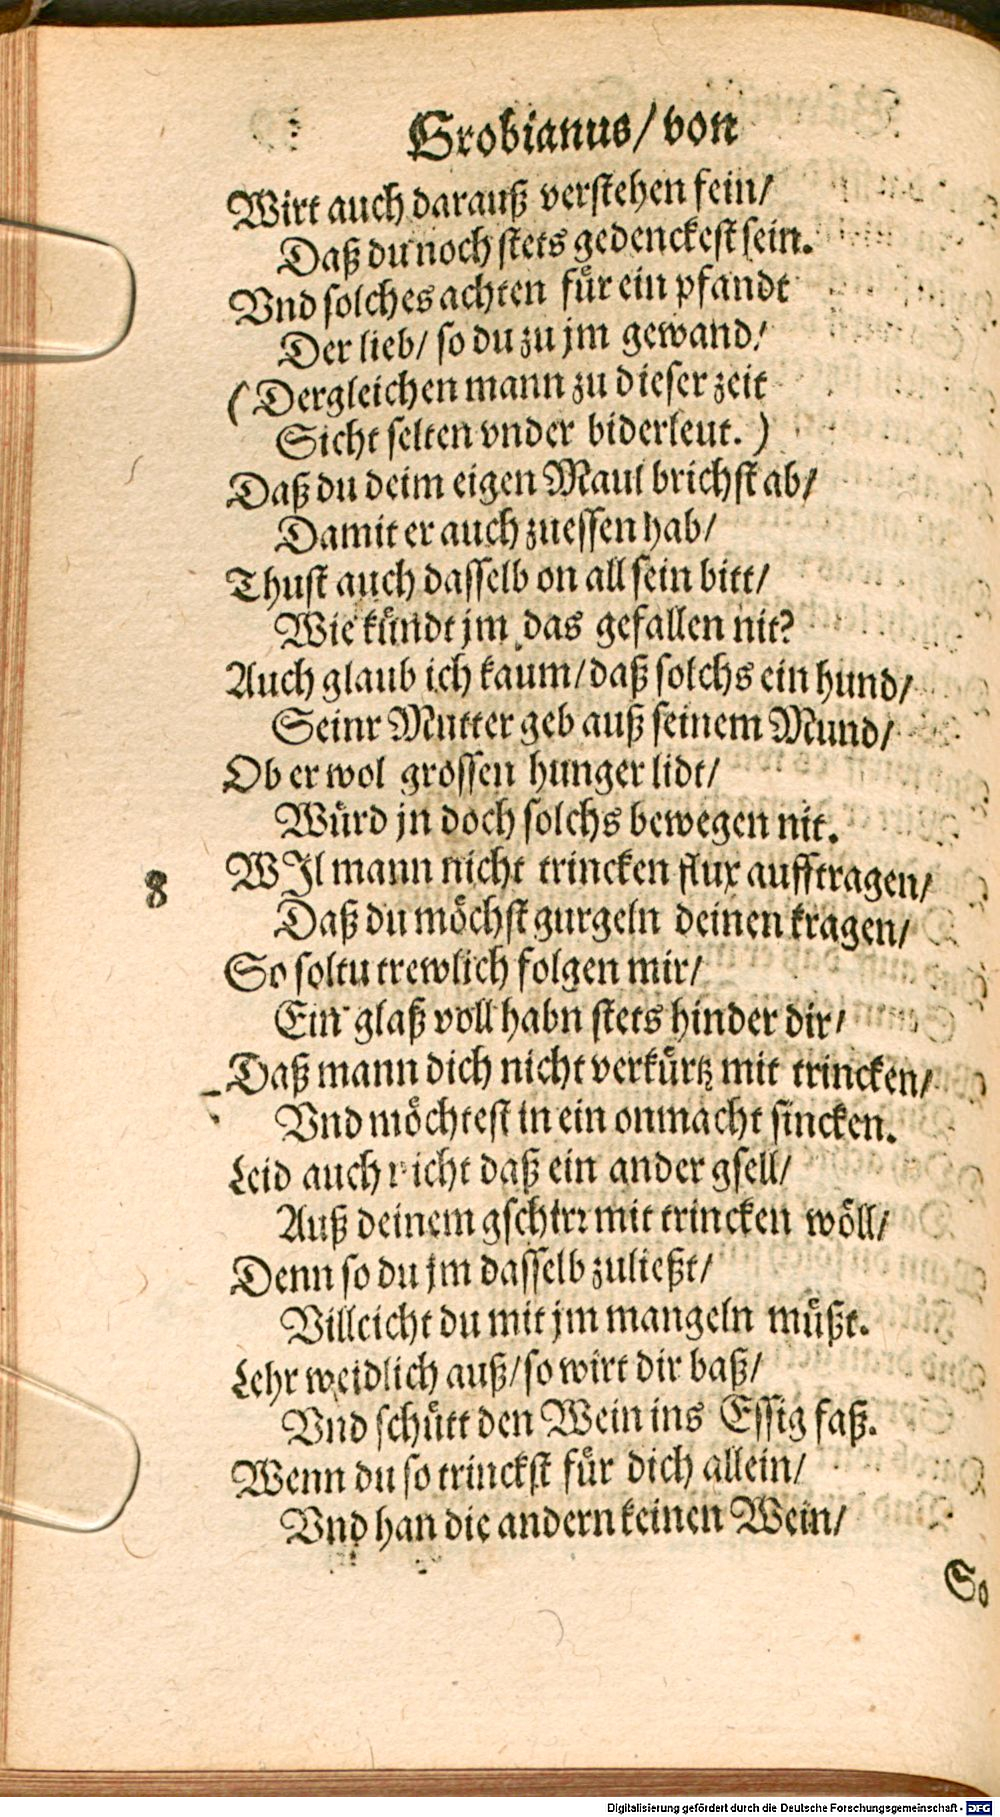 Grobianus/ von
Wirt auch darauß verstehen fein/
Daß du noch stets gedenckest sein.
Vnd solches achten für ein pfandt
Der lieb/ so du zu jm gewand/
(Dergleichen mann zu dieser zeit
Sicht selten vnder biderleut.)
Daß du deim eigen Maul brichst ab/
Damit er auch zuessen hab/
Thust auch dasselb on all sein bitt/
Wie kündt jm das gefallen nit?
Auch glaub ich kaum/ daß solchs ein hund/
Seinr Mutter geb auß seinem Mund/
Ob er wol grossen hunger lidt/
Würd jn doch solchs bewegen nit.
8 WJl mann nicht trincken flux aufftragen/
Daß du möchst gurgeln deinen kragen/
So soltu trewlich folgen mir/
Ein glaß voll habn stets hinder dir/
Daß mann dich nicht verkürtz mit trincken/
Vnd möchtest in ein onmacht sincken.
Leid auch nicht daß ein ander gsell/
Auß deinem gschirr mit trincken wöll/
Denn so du jm dasselb zuließt/
Villeicht du mit jm mangeln müßt.
Lehr weidlich auß/ so wirt dir baß/
Vnd schütt den Wein ins Essig faß.
Wenn du so trinckst für dich allein/
Vnd han die andern keinen Wein/
So
Digitalisierung gefördert durch die Deutsche Forschungsgemeinschaft - DFG